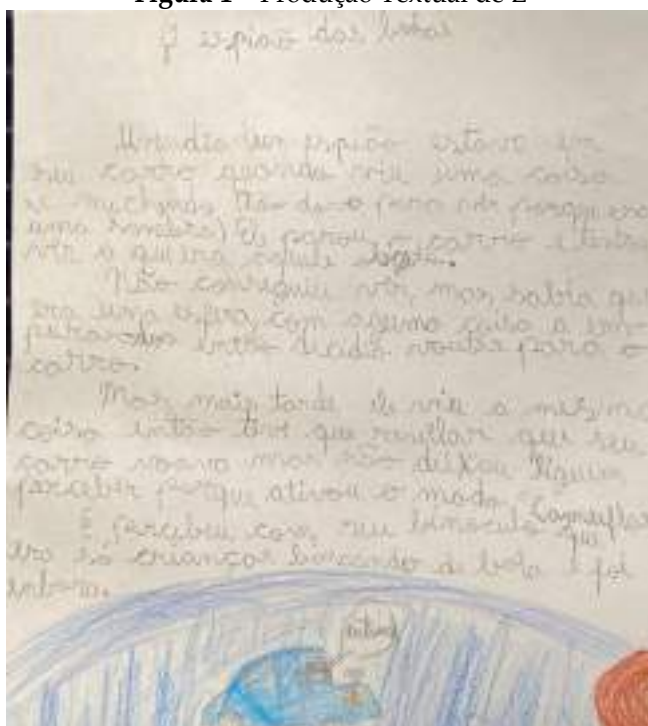 Figura 1 - Produção Textual de L
O espião das bolas
Um dia um espião estava em
seu carro quando viu uma coisa
se mechendo não da-o para ver porque era
uma sombra) Ele parou o carro e tentou
ver o que era aquele objeto.
Não conseguiu ver, mas sabia que
era uma esfera, com alguma coisa a em-
purando então decidiu voltar para o
carro.
Mas mais tarde ele viu a mesma
coisa então teve que revelar que seu
carro voava mas não deixou
perceber porque ativou o modo camuflar
E percebeu com seu binoculo que
era só crianças brincando de bola e foi
embora.